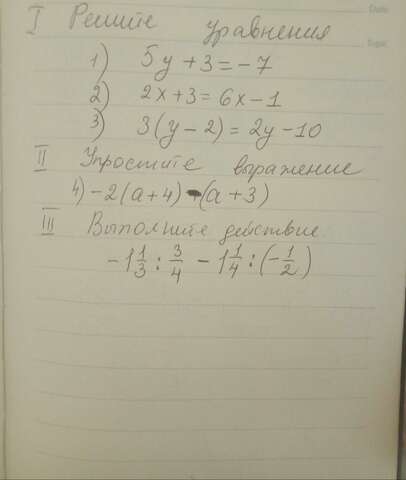 I Решите уравнения
1) 5y + 3 = -7
2) 2x + 3 = 6x - 1
3) 3(y - 2) = 2y - 10
II Упростите выражение
4) -2(a + 4) - (a + 3)
III Выполните действие
-1 1/3 : 3/4 - 1 1/4 : (-1/2)